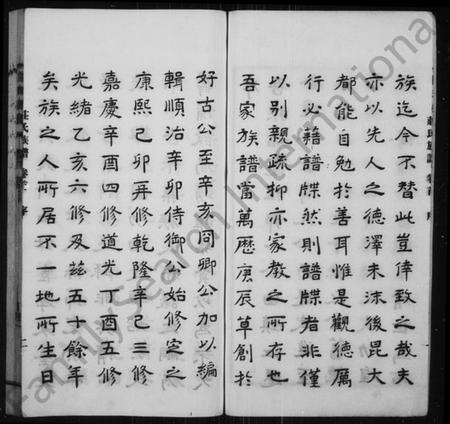 族迄今不替此豈倖致之哉夫
亦以先人之德澤未沫後昆大
都能自勉於善耳惟是觀德厲
行必藉譜牒然則譜牒者非僅
以別親疏抑亦家教之所存也
吾家族譜當萬歷庚辰草創於
好古公至辛亥同卿公加以編
輯順治辛卯侍御公始修定之
康熙己卯再修乾隆辛巳三修
嘉慶辛酉四修道光丁酉五修
光緒乙亥六修及茲五十餘年
矣族之人所居不一地所生日
FamilySearch International